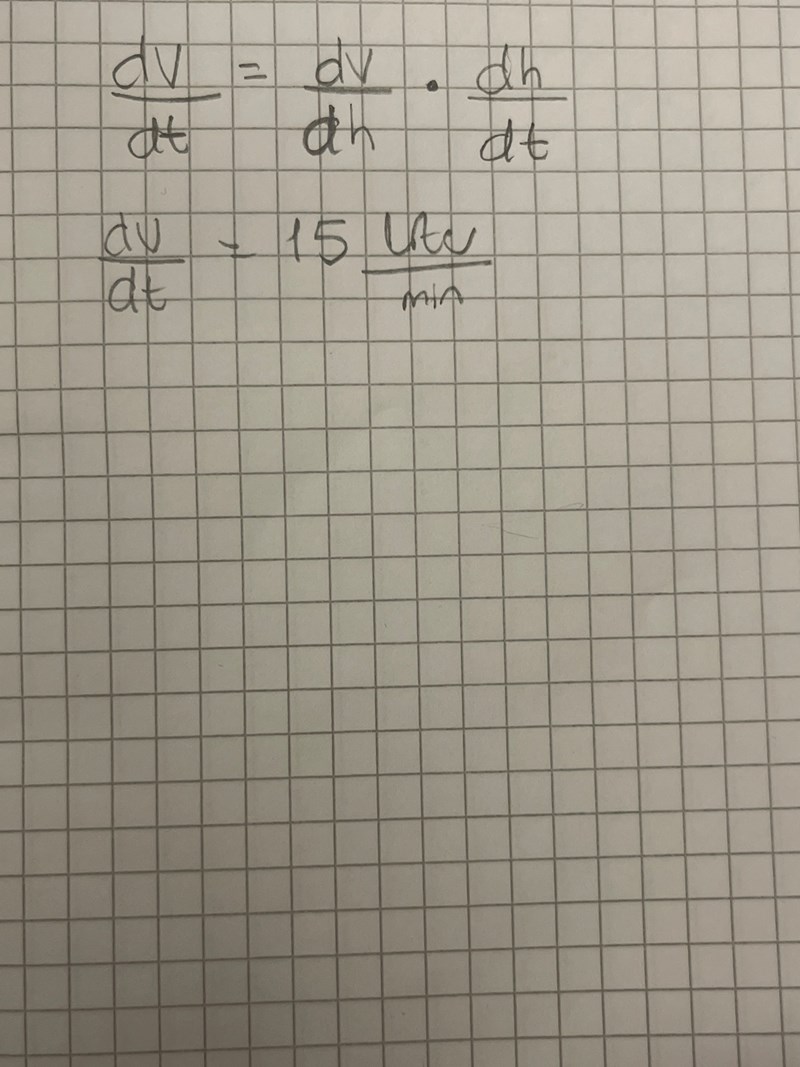 dV/dt = dV/dh · dh/dt
dV/dt = 15 liter/min